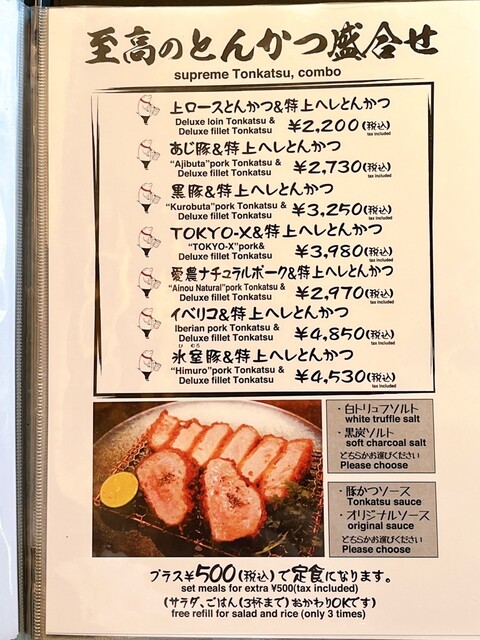 至高のとんかつ盛合せ
supreme Tonkatsu, combo
上ロースとんかつ&特上ヘレとんかつ
Deluxe loin Tonkatsu &
Deluxe fillet Tonkatsu ¥2,200(税込)
tax included
あじ豚&特上ヘレとんかつ
"Ajibuta"pork Tonkatsu &
Deluxe fillet Tonkatsu ¥2,730(税込)
tax included
黒豚&特上ヘレとんかつ
"Kurobuta"pork Tonkatsu &
Deluxe fillet Tonkatsu ¥3,250(税込)
tax included
TOKYO-X&特上ヘレとんかつ
"TOKYO-X"pork&
Deluxe fillet Tonkatsu ¥3,980(税込)
tax included
愛農ナチュラルポーク&特上ヘレとんかつ
"Ainou Natural"pork Tonkatsu &
Deluxe fillet Tonkatsu ¥2,970(税込)
tax included
イベリコ&特上ヘレとんかつ
Iberian pork Tonkatsu &
Deluxe fillet Tonkatsu ¥4,850(税込)
tax included
ひむろ
氷室豚&特上ヘレとんかつ
"Himuro"pork Tonkatsu &
Deluxe fillet Tonkatsu ¥4,530(税込)
tax included
・白トリュフソルト
white truffle salt
・黒炭ソルト
soft charcoal salt
どちらかお選びください
Please choose
・豚かつソース
Tonkatsu sauce
・オリジナルソース
original sauce
どちらかお選びください
Please choose
プラス¥500(税込)で定食になります。
set meals for extra ¥500(tax included)
(サラダ、ごはん(3杯まで)おかわりOKです)
free refill for salad and rice (only 3 times)